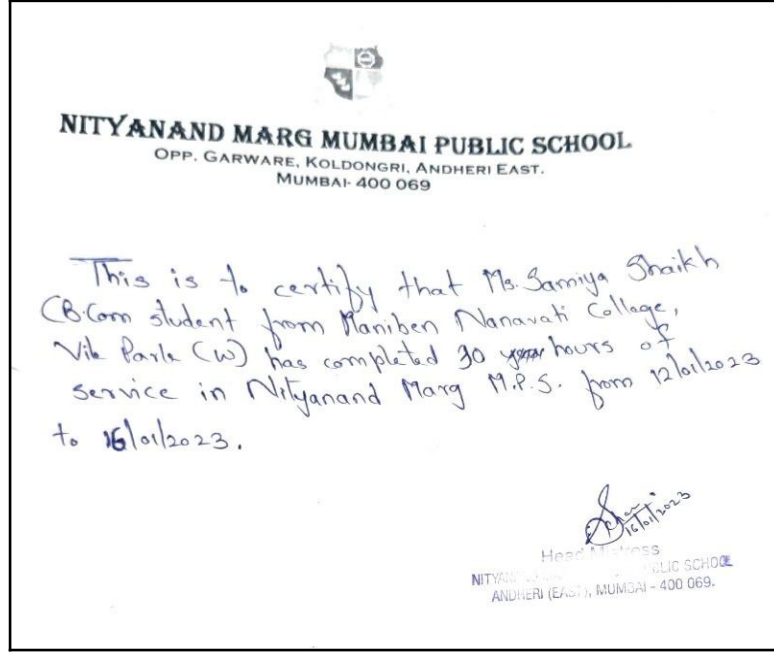 NITYANAND MARG MUMBAI PUBLIC SCHOOL
OPP. GARWARE, KOLDONGRI, ANDHERI EAST.
MUMBAI- 400 069
This is to certify that Ms. Samiya Shaikh
(B.Com student from Maniben Nanavati College,
Vile Parle (W) has completed 30 hours of
service in Nityanand Marg M.P.S. from 12/01/2023
to 16/01/2023.
16/01/2023
Head Mistress
PUBLIC SCHOOL
ANDHERI (EAST), MUMBAI - 400 069.